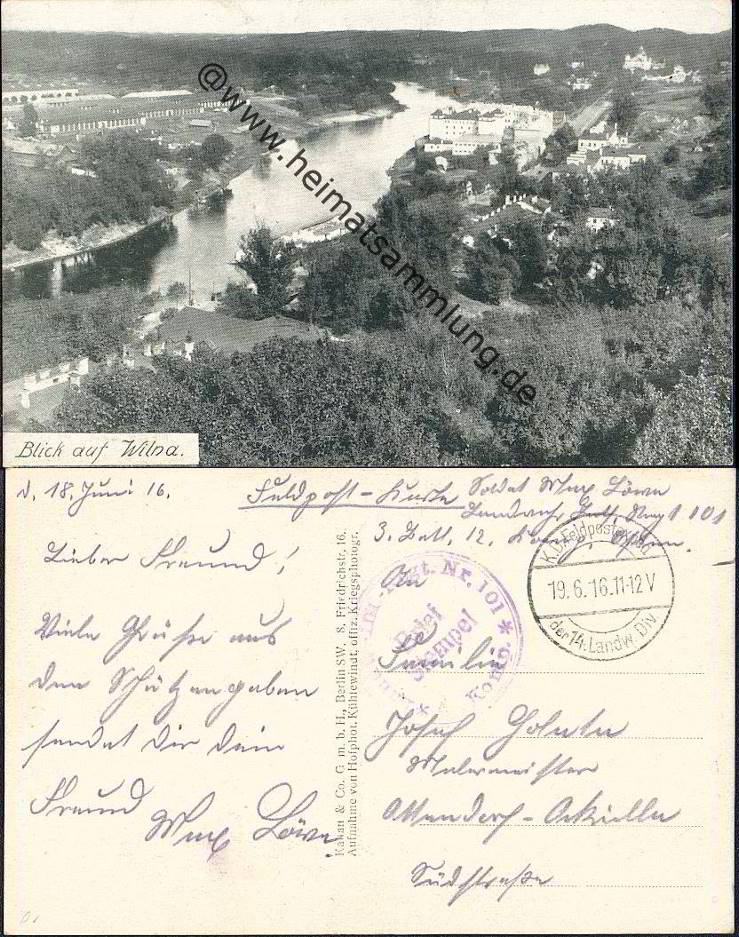 @www.heimatsammlung.de
Blick auf Wilna.
d. 18. Juni 16.
Feldpost-Karte
Soldat Max Löwe
Landwehr Inft. Reg 101
3. Batl. 12. Komp. Osten.
K.D. Feldpostexped.
19.6.16.11-12 V
der 14. Landw. Div
Rgt. Nr. 101
Brief
Stempel
Komp.
Lieber Freund!
Viele Grüße aus
dem Schützengraben
sendet dir dein
Freund Max Löwe
Kahan & Co. G. m. b. H., Berlin SW. 8. Friedrichstr. 16.
Aufnahme von Hofphot. Kühlewindt, offiz. Kriegsphotogr.
An
Familie
Josef
Malermeister
Ottendorf-Okrilla
Südstraße